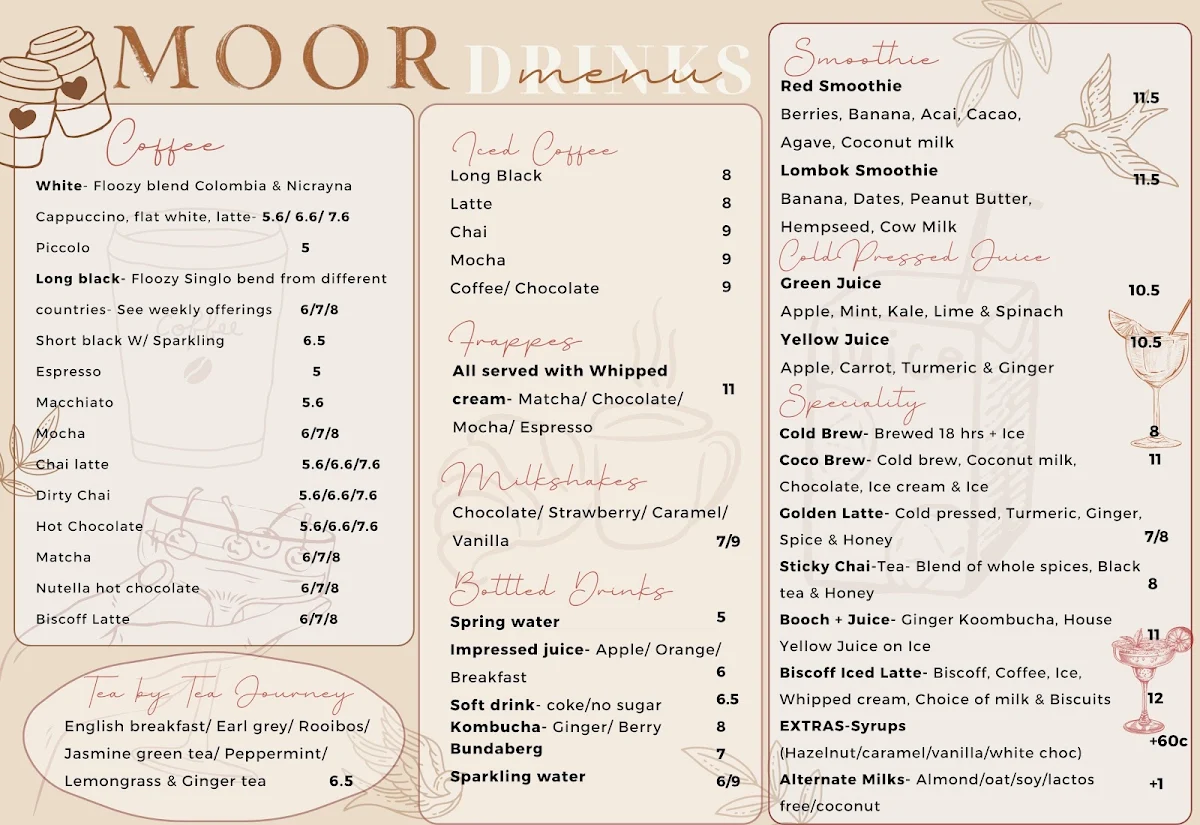 MOOR DRINKS menu
Coffee
White- Floozy blend Colombia & Nicrayna
Cappuccino, flat white, latte- 5.6/ 6.6/ 7.6
Piccolo 5
Long black- Floozy Singlo bend from different
countries- See weekly offerings 6/7/8
Short black W/ Sparkling 6.5
Espresso 5
Macchiato 5.6
Mocha 6/7/8
Chai latte 5.6/6.6/7.6
Dirty Chai 5.6/6.6/7.6
Hot Chocolate 5.6/6.6/7.6
Matcha 6/7/8
Nutella hot chocolate 6/7/8
Biscoff Latte 6/7/8
Coffee
Tea by Tea Journey
English breakfast/ Earl grey/ Rooibos/
Jasmine green tea/ Peppermint/
Lemongrass & Ginger tea 6.5
Iced Coffee
Long Black 8
Latte 8
Chai 9
Mocha 9
Coffee/ Chocolate 9
Frappes
All served with Whipped
cream- Matcha/ Chocolate/ 11
Mocha/ Espresso
Milkshakes
Chocolate/ Strawberry/ Caramel/
Vanilla 7/9
Bottled Drinks
Spring water 5
Impressed juice- Apple/ Orange/
Breakfast 6
Soft drink- coke/no sugar 6.5
Kombucha- Ginger/ Berry 8
Bundaberg 7
Sparkling water 6/9
Smoothie
Red Smoothie 11.5
Berries, Banana, Acai, Cacao,
Agave, Coconut milk
Lombok Smoothie 11.5
Banana, Dates, Peanut Butter,
Hempseed, Cow Milk
Cold Pressed Juice
Green Juice 10.5
Apple, Mint, Kale, Lime & Spinach
Yellow Juice 10.5
Apple, Carrot, Turmeric & Ginger
juice
Speciality
Cold Brew- Brewed 18 hrs + Ice 8
Coco Brew- Cold brew, Coconut milk, 11
Chocolate, Ice cream & Ice
Golden Latte- Cold pressed, Turmeric, Ginger,
Spice & Honey 7/8
Sticky Chai-Tea- Blend of whole spices, Black
tea & Honey 8
Booch + Juice- Ginger Koombucha, House 11
Yellow Juice on Ice
Biscoff Iced Latte- Biscoff, Coffee, Ice,
Whipped cream, Choice of milk & Biscuits 12
EXTRAS-Syrups +60c
(Hazelnut/caramel/vanilla/white choc)
Alternate Milks- Almond/oat/soy/lactos +1
free/coconut